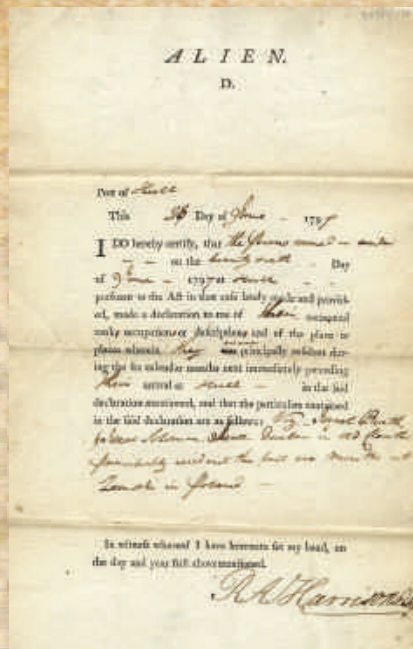 ALIEN.
D.
Port of Hull
This 26 Day of June - 1797
I DO hereby certify, that the Persons named - under
- - on the twenty sixth - Day
of June - 1797 at Hull
pursuant to the Act in that case lately made and provid-
ed, made a declaration to me of their
rank, occupation or description and of the place or
places wherein they principally resided dur-
ing the six calendar months next immediately preceding
their arrival at Hull - in the said
declaration mentioned, and that the particulars contained
in the said declaration are as follows: Viz
in old
principally resided the last six months at
in Poland -
In witness whereof I have hereunto set my hand, on
the day and year first above mentioned.
R A Harrison